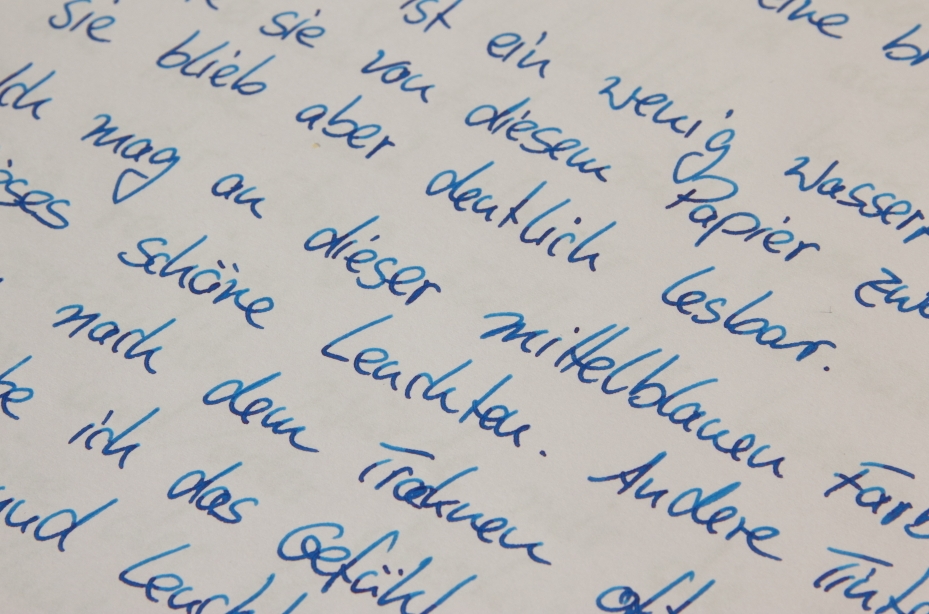 eine br
ist ein wenig Wasser
sie von diesem Papier
sie blieb aber deutlich lesbar.
Ich mag an dieser mittelblauen Farb
schöne Leuchten. Andere Tinte
nach dem Trocknen oft
be ich das Gefühl
und Leucht